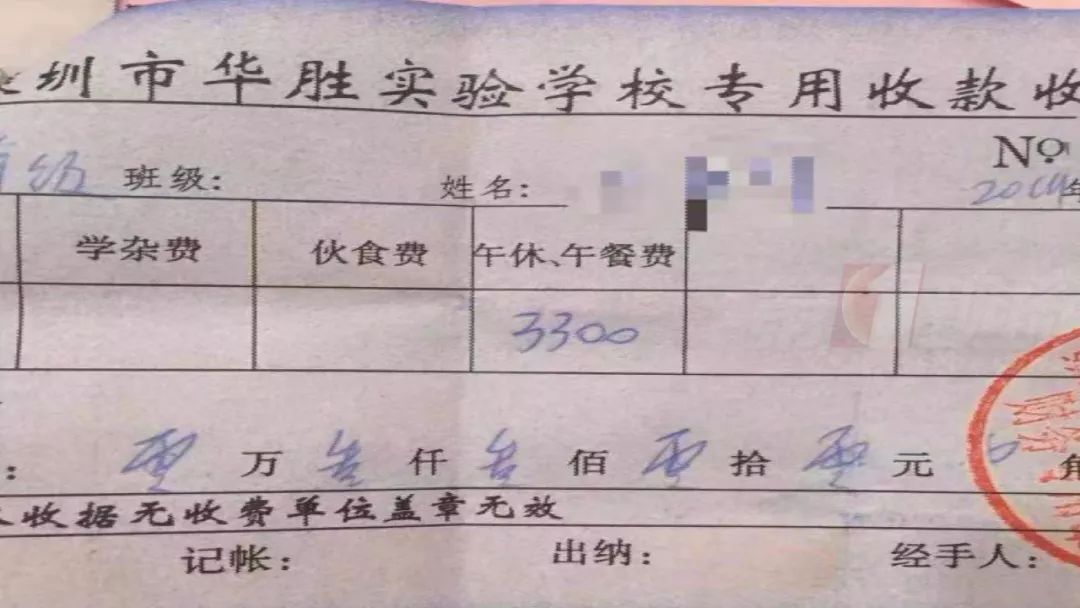 圳市华胜实验学校专用收款收
级 班级: 姓名: №
学杂费 伙食费 午休、午餐费
3300
: 零 万 叁 仟 叁 佰 零 拾 零 元 角
收据无收费单位盖章无效
记帐: 出纳: 经手人: